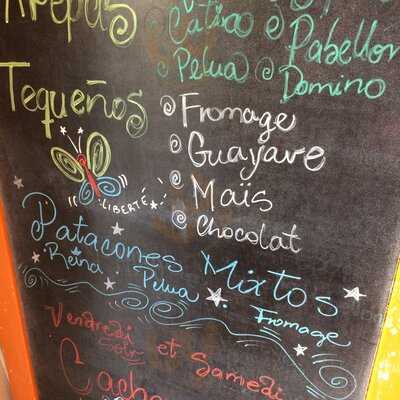 Arepas
Catira
Pabellon
Pelua
Domino
Tequeños
Fromage
Guayave
Maïs
Chocolat
LIBERTÉ
Patacones Mixtos
Reina Pelua Fromage
Vendredi et Samedi
Soir